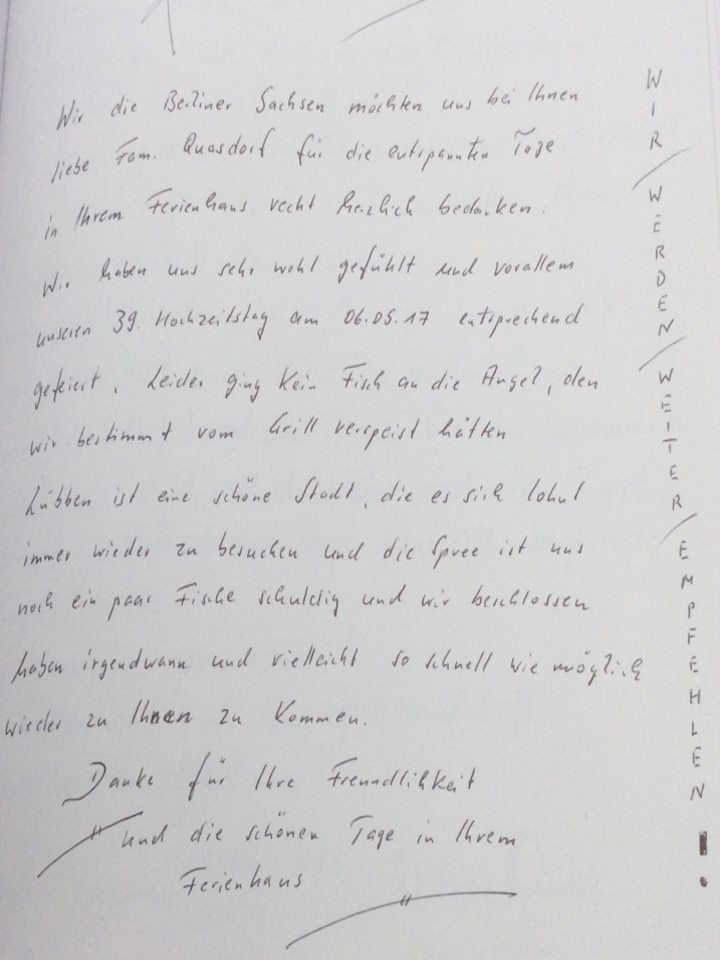 Wir die Berliner Sachsen möchten uns bei Ihnen
liebe Fam. Quasdorf für die entspannten Tage
in Ihrem Ferienhaus recht herzlich bedanken.
Wir haben uns sehr wohl gefühlt und vorallem
unseren 39. Hochzeitstag am 06.05.17 entsprechend
gefeiert. Leider ging kein Fisch an die Angel, den
wir bestimmt vom Grill verspeist hätten
Lübben ist eine schöne Stadt, die es sich lohnt
immer wieder zu besuchen und die Spree ist uns
noch ein paar Fische schuldig und wir beschlossen
haben irgendwann und vielleicht so schnell wie möglich
wieder zu Ihnen zu kommen.
Danke für Ihre Freundlichkeit
" und die schönen Tage in Ihrem
Ferienhaus "
WIR / WERDEN / WEITER / EMPFEHLEN !